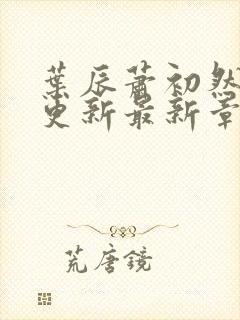 葉辰蕭初然
更新最新章
荒唐鏡